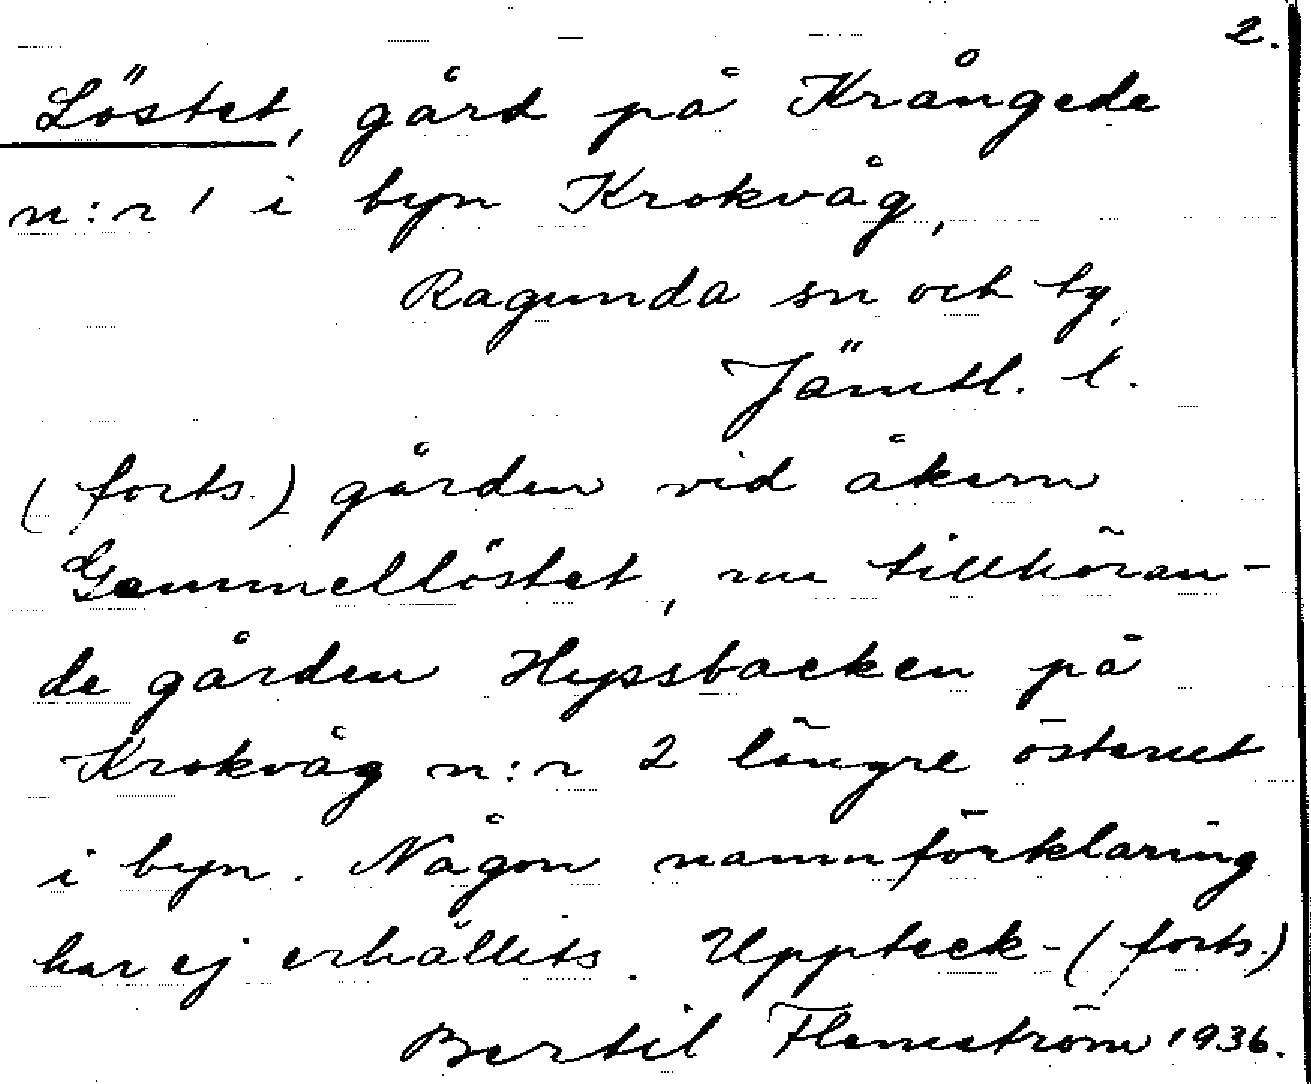 2.
Löstet, gård på Krångede
n:r 1 i byn Krokvåg,
Ragunda sn och tg,
Jämtl. l.
(forts.) gården vid åkern
Gammellöstet, nu tillhöran-
de gården Hyssbacken på
Krokvåg n:r 2 längre österut
i byn. Någon namnförklaring
har ej erhållits. Uppteck- (forts.)
Bertil Flemström 1936.